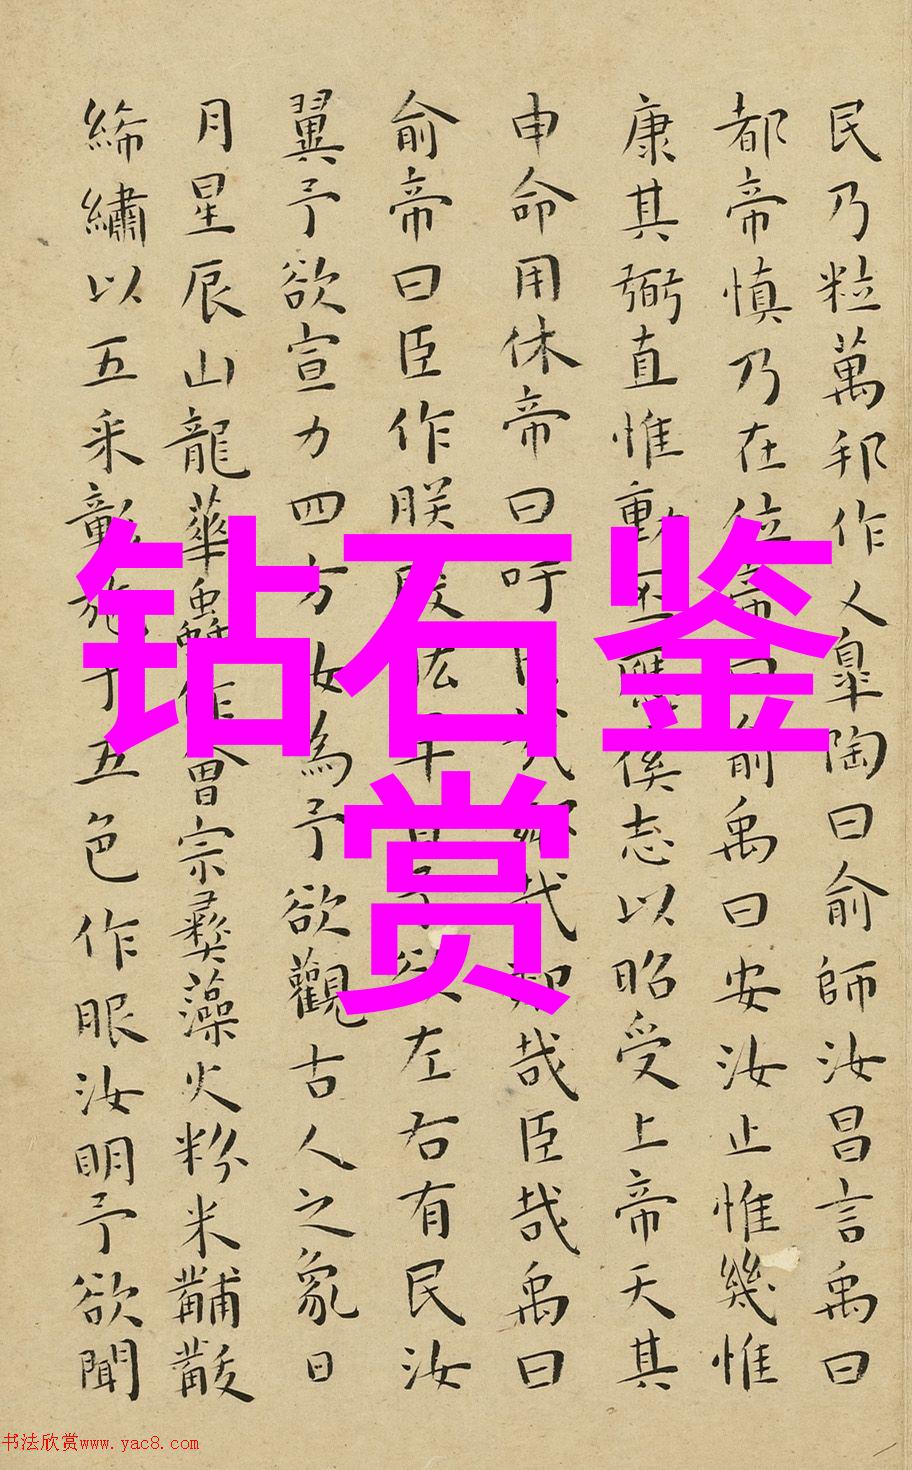 钻石鉴
赏
民乃粒萬邦作乂皐陶曰俞師汝昌言禹曰
都帝慎乃在位帝曰俞禹曰安汝止惟幾惟
康其弼直惟動丕應徯志以昭受上帝天其
申命用休帝曰吁臣哉鄰哉鄰哉臣哉禹曰
俞帝曰臣作朕股肱耳目予欲左右有民汝
翼予欲宣力四方汝為予欲觀古人之象日
月星辰山龍華蟲作會宗彝藻火粉米黼黻
絺繡以五采彰施于五色作服汝明予欲聞
书法欣赏www.yac8.com